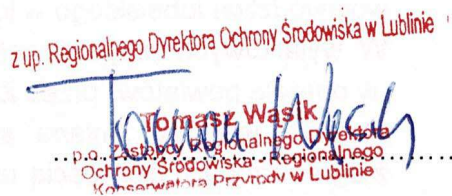 z up. Regionalnego Dyrektora Ochrony Środowiska w Lublinie
Tomasz Wąsik
p.o. Zastępcy Regionalnego Dyrektora
Ochrony Środowiska - Regionalnego
Konserwatora Przyrody w Lublinie